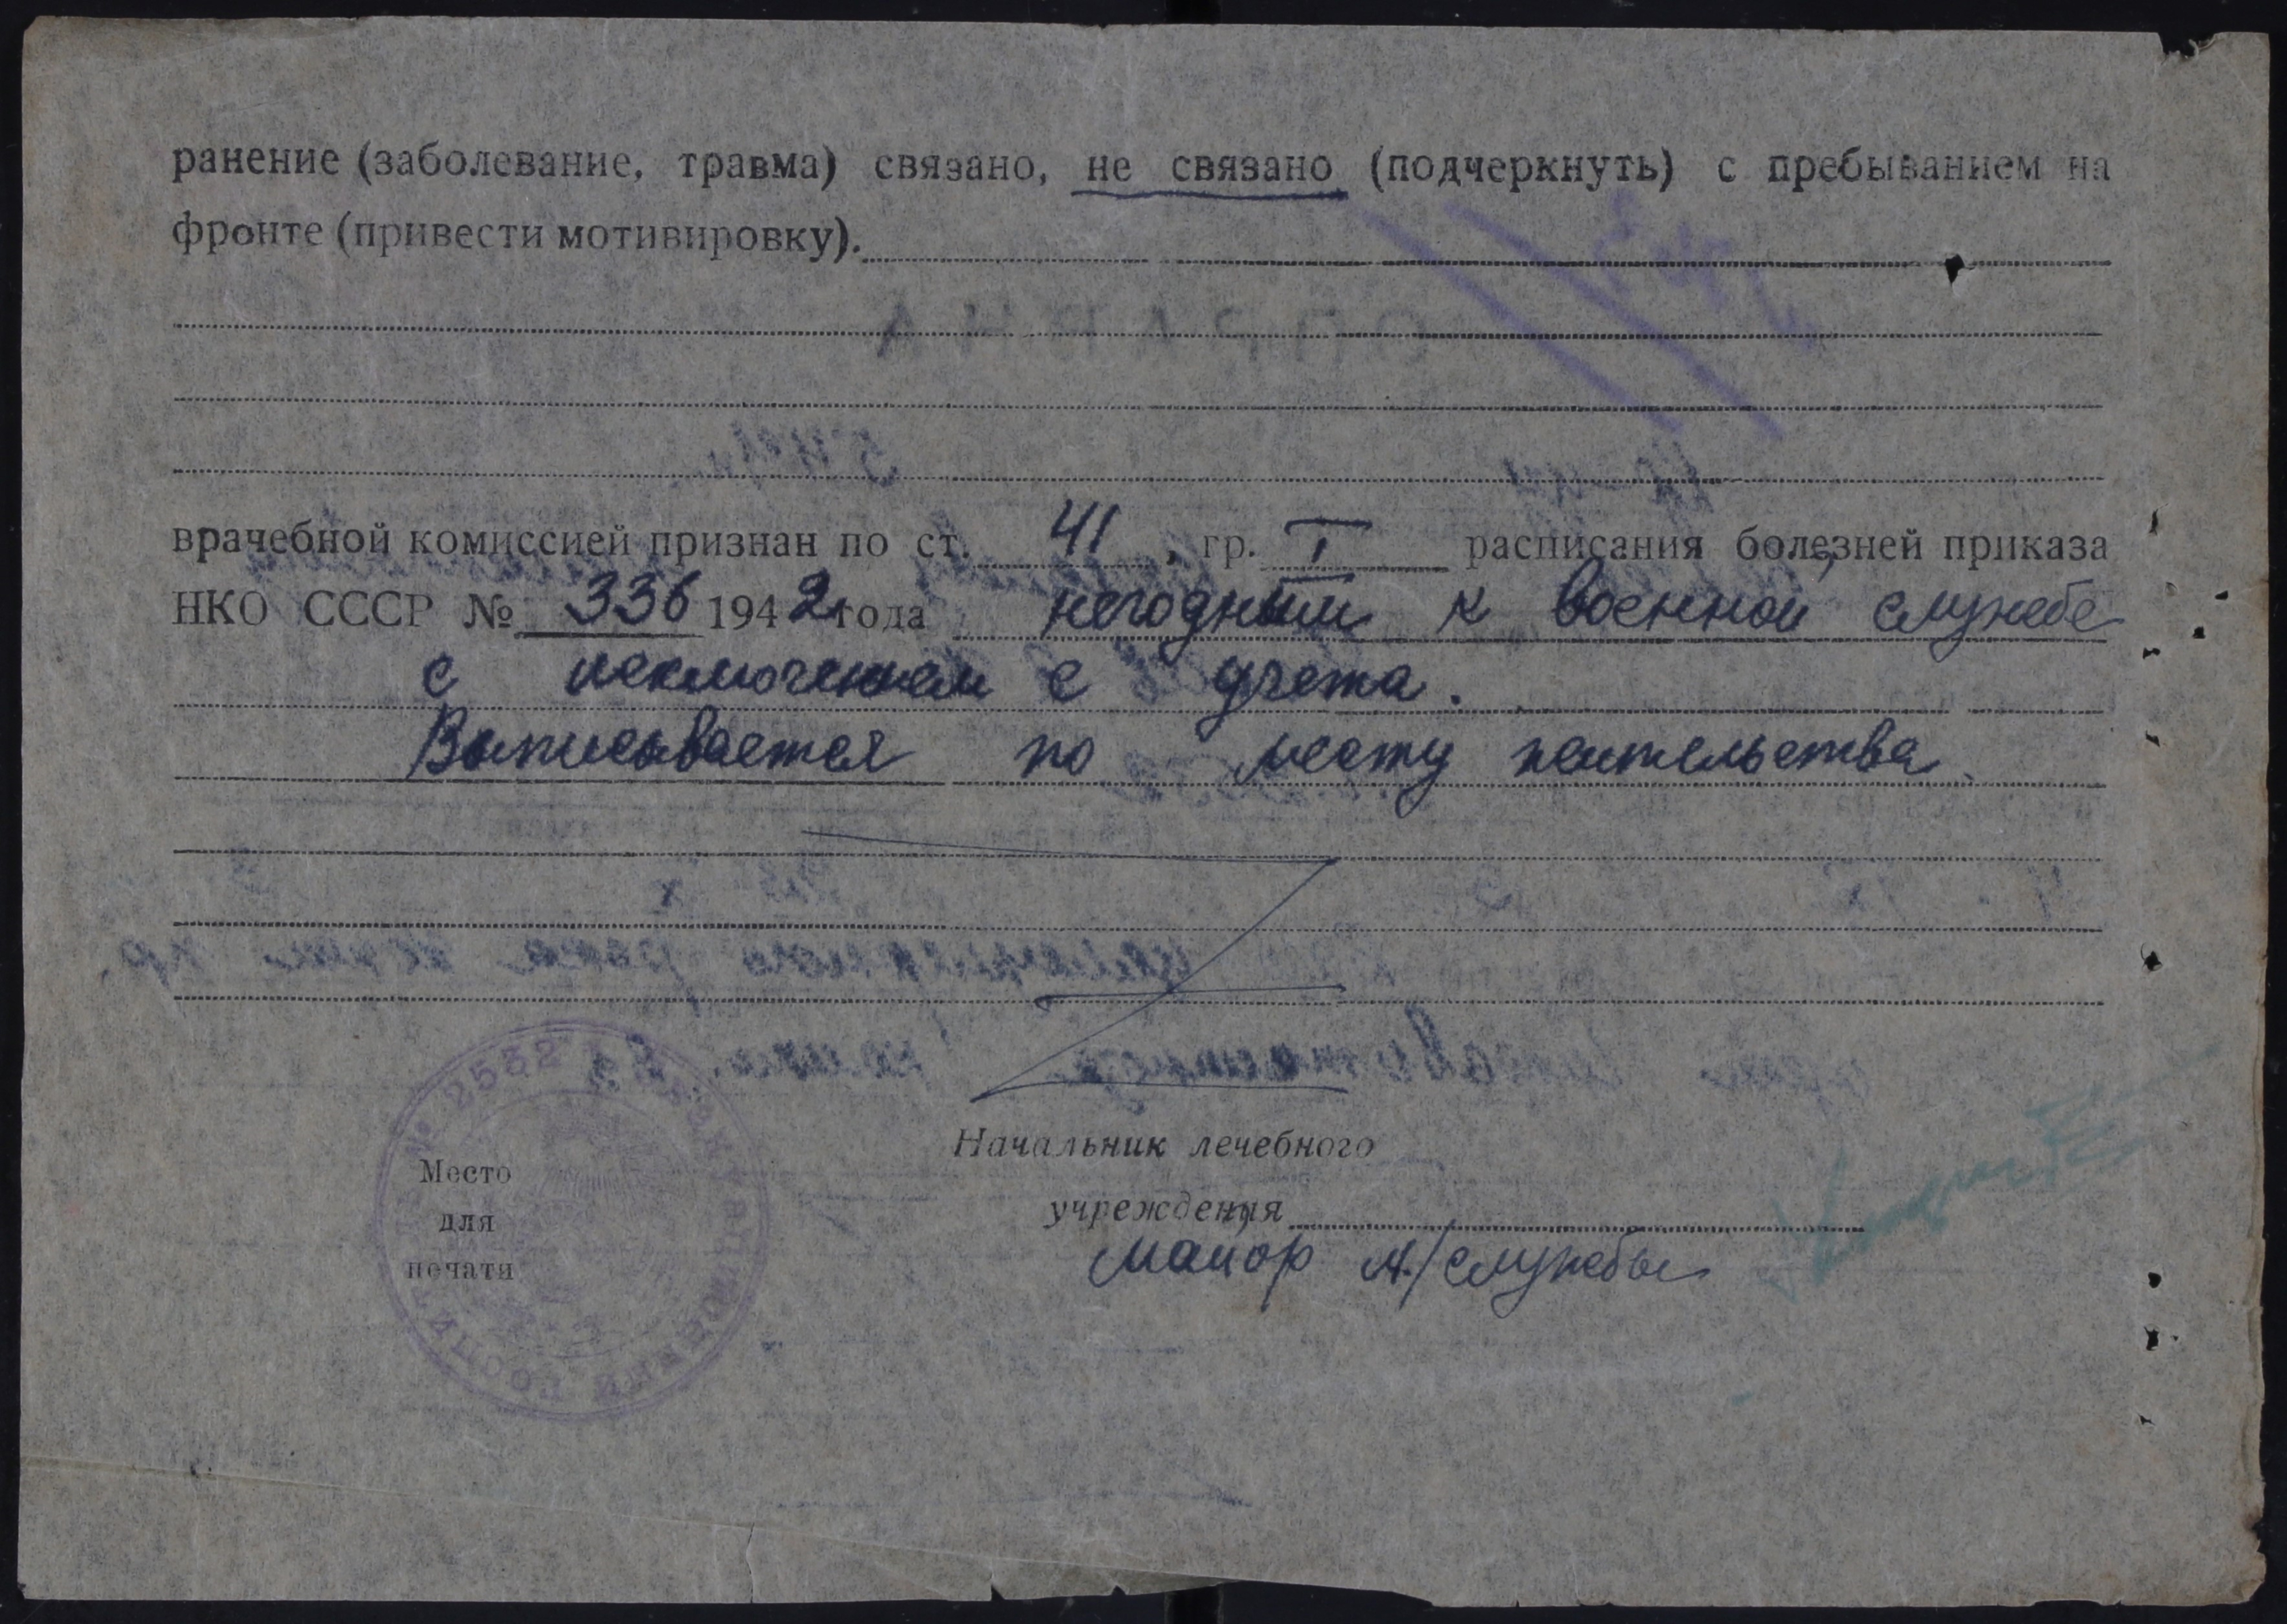 ранение (заболевание, травма) связано, не связано (подчеркнуть) с пребыванием на
фронте (привести мотивировку).
врачебной комиссией признан по ст. 41, гр. I расписания болезней приказа
НКО СССР № 336 1942 года негодным к военной службе
с исключением с учета.
Выписывается по месту жительства
№ 2532
ЭВАКУАЦИОННЫЙ ГОСПИТАЛЬ
Место
для
печати
Начальник лечебного
учреждения
Майор м/службы